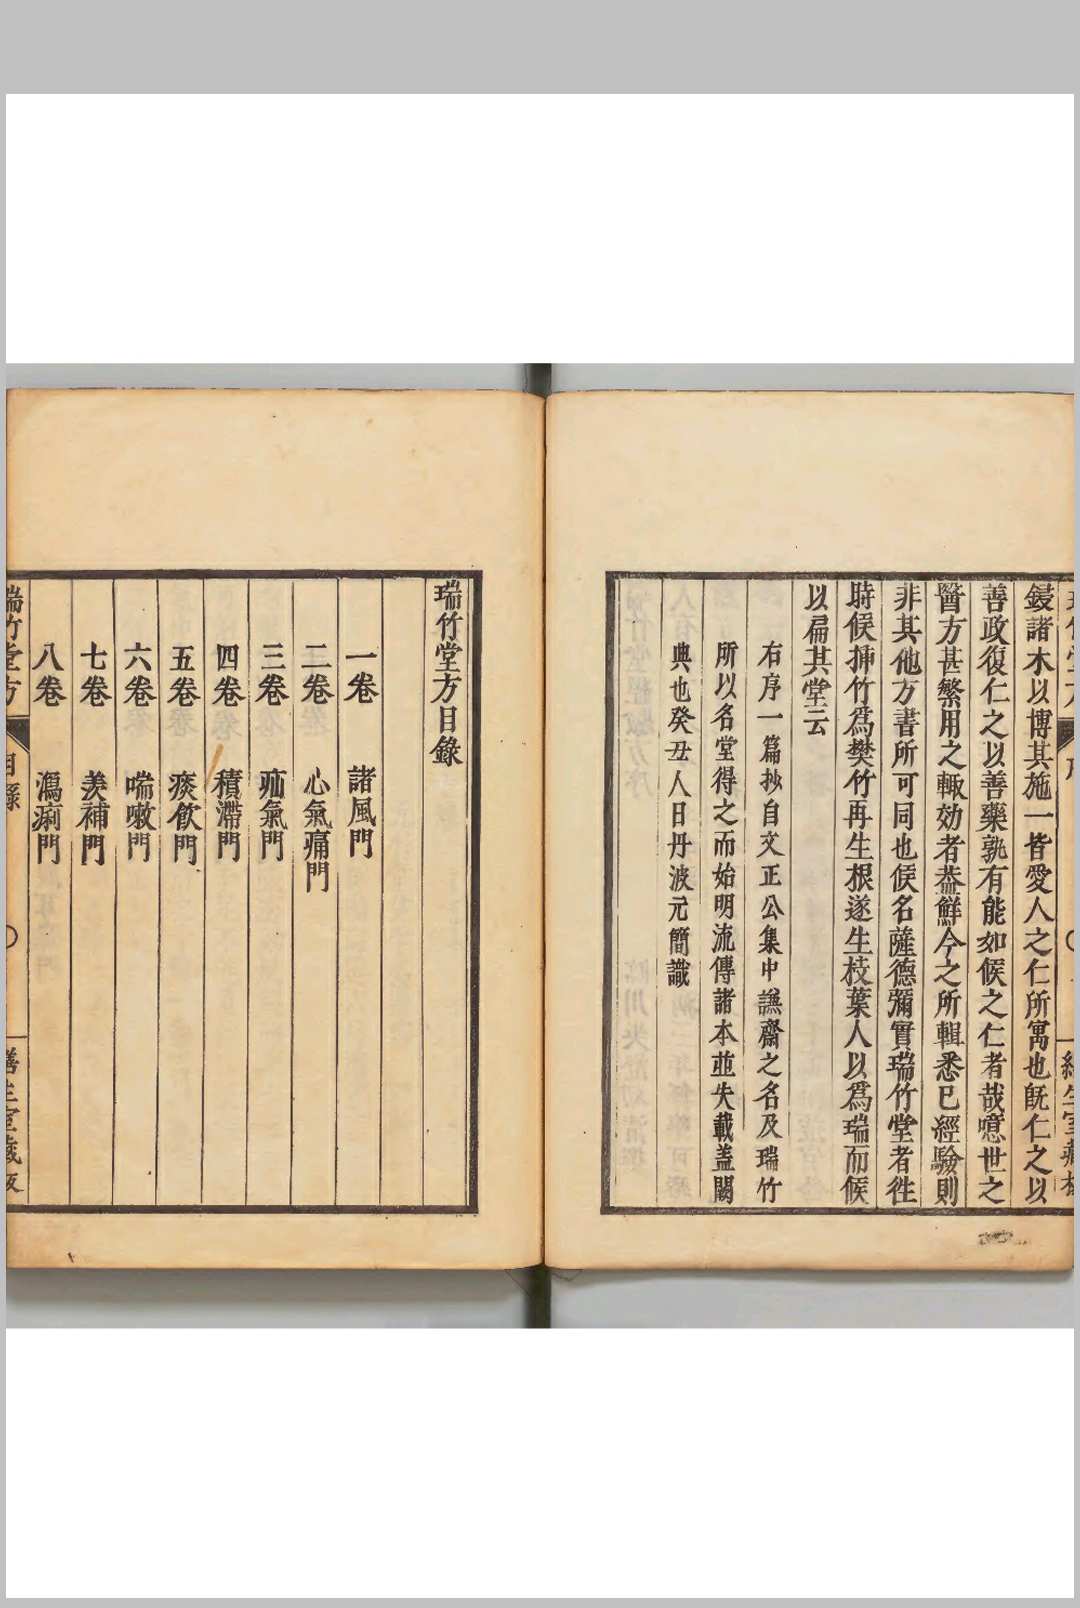 鋟諸木以博其施一皆愛人之仁所寓也旣仁之以
善政復仁之以善藥孰有能如候之仁者哉噫世之
醫方甚繁用之輙効者葢鮮今之所輯悉已經驗則
非其他方書所可同也候名薩德彌實瑞竹堂者徃
時候揷竹爲樊竹再生根遂生枝葉人以爲瑞而候
以扁其堂云
右序一篇抄自文正公集中謙齋之名及瑞竹
所以名堂得之而始明流傳諸本並失載盖闕
典也癸丑人日丹波元簡識
瑞竹堂方目錄
一卷 諸風門
二卷 心氣痛門
三卷 疝氣門
四卷 積滯門
五卷 痰飮門
六卷 喘嗽門
七卷 羡補門
八卷 瀉痢門
瑞竹堂方 目錄